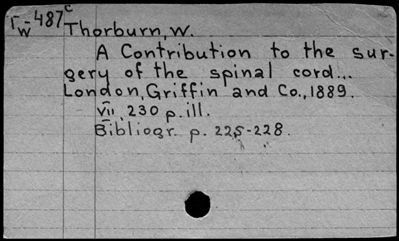 Tw-487c
Thorburn, W.
A Contribution to the sur-
gery of the spinal cord...
London, Griffin and Co., 1889.
vii, 230 p. ill.
Bibliogr. p. 225-228.